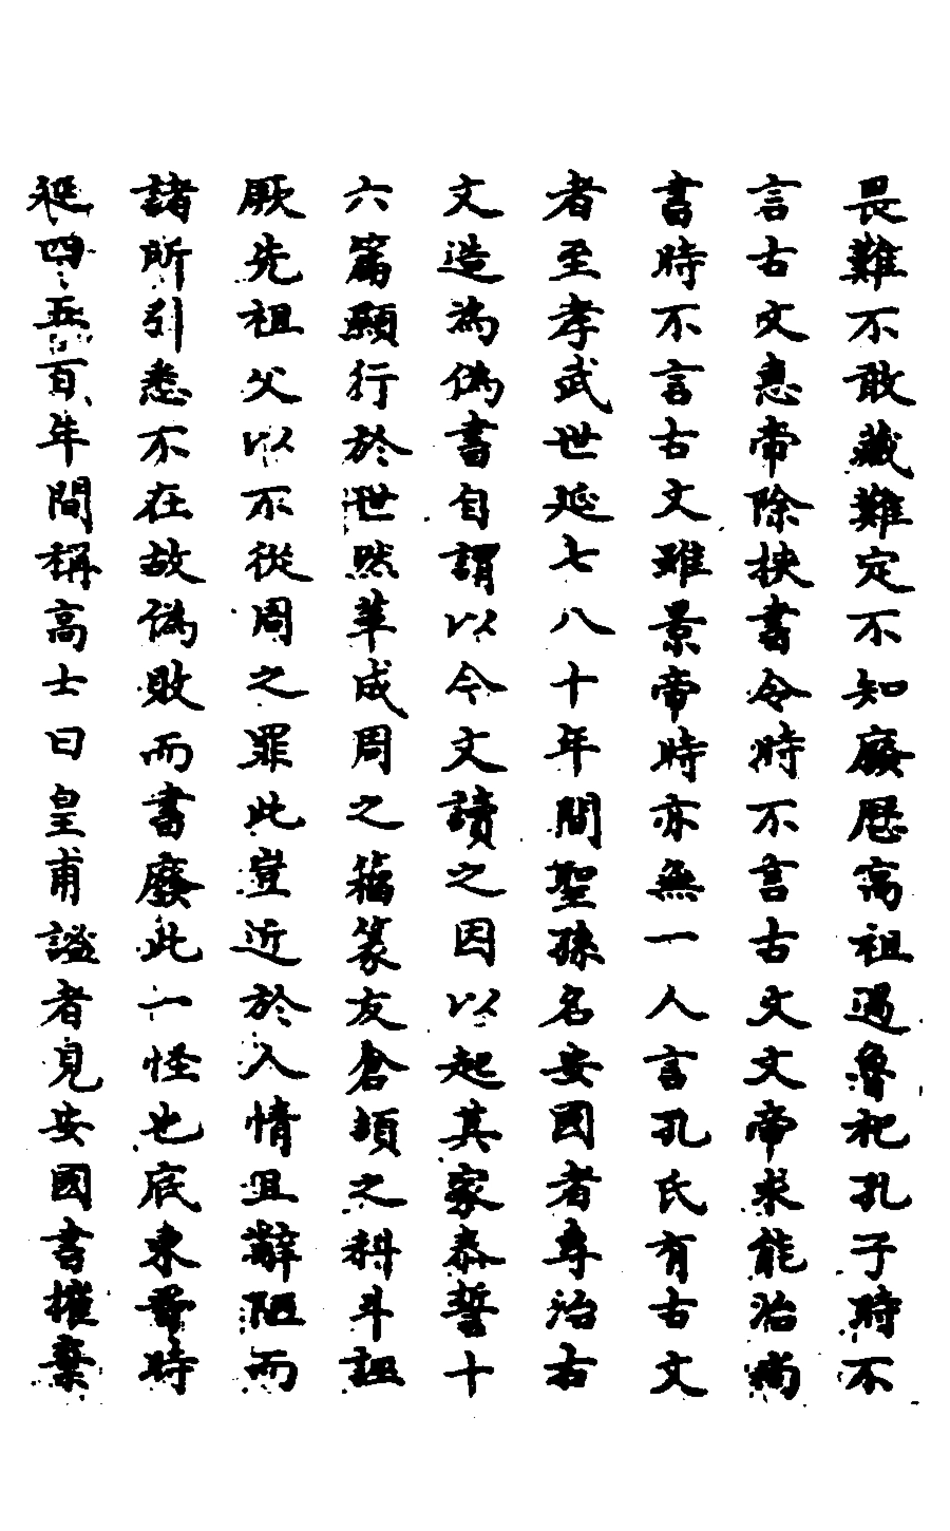 畏難不敢藏難定不知廢歷高祖過魯祀孔子時不
言古文惠帝除挾書令時不言古文文帝求能治尚
書時不言古文雖景帝時亦無一人言孔氏有古文
者至孝武世延七八十年間聖孫名安國者專治古
文造為偽書自謂以今文讀之因以起其家泰誓十
六篇顯行於世然華成周之籀篆友倉頡之科斗誣
厥先祖父以不從周之罪此豈近於人情且辭陋而
諸所引悉不在故偽敗而書廢此一怪也底東晉時
延四五百年間稱高士曰皇甫謐者見安國書摧棄